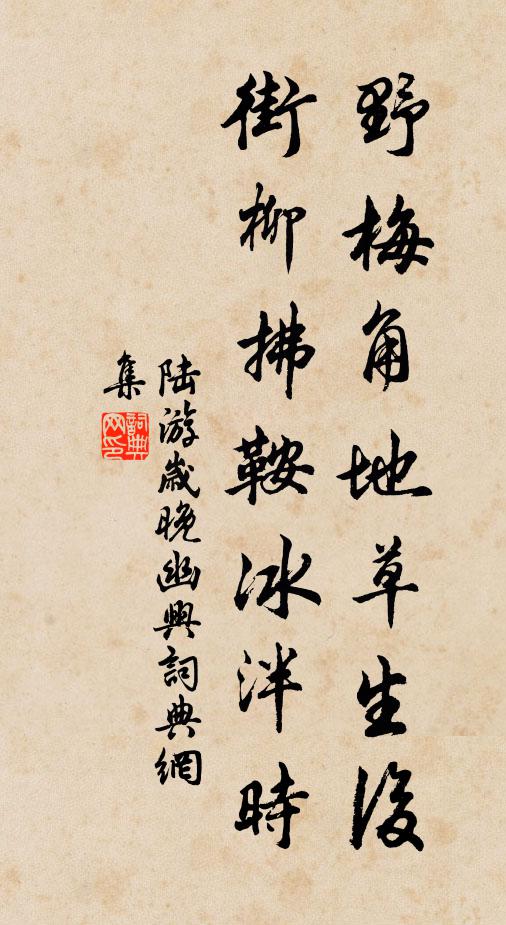 野梅角地草生後
街柳拂鞍冰泮時
陆游歲晚幽興詞典網
集
詞典网印